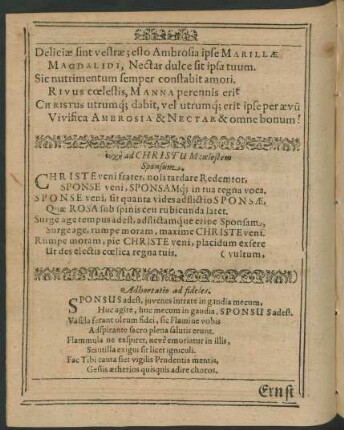 Deliciæ sint vestræ; esto Ambrosia ipse MARILLÆ
MAGDALIDI, Nectar dulce sit ipsa tuum.
Sic nutrimentum semper constabit amori.
RIVUS cœlestis, MANNA perennis erit
CHRISTUS utrumq; dabit, vel utrumq; erit ipse per ævũ
Vivifica AMBROSIA & NECTAR & omne bonum!
ad CHRISTUM cœlestem
Sponsum.
CHRISTE veni frater, noli tardare Redemtor,
SPONSE veni, SPONSAMq; in tua regna voca.
SPONSE veni, sit quanta vides adflictio SPONSÆ,
Quæ ROSA sub spinis ceu rubicunda latet.
Surge age tempus adest, adflictamque erine Sponsam,
Surge age, rumpe moram, maxime CHRISTE veni.
Rumpe moram, pie CHRISTE veni, placidum exsere
Ut des electis cœlica regna tuis. (vultum,
Adhortatio ad fideles.
SPONSUS adest, juvenes intrate in gaudia mecum,
Huc agite, huc mecum in gaudia. SPONSUS adest.
Vasula ferant oleum fidei, sic Flaminè vobis
Adspirante sacro plena salutis erunt.
Flammula ne exspiret, neve emoriatur in illis,
Scintilla exigui sit licet igniculi.
Fac Tibi cauta siet vigilis Prudentia mentis,
Gestis ætherios quisquis adire choros.
Ernst